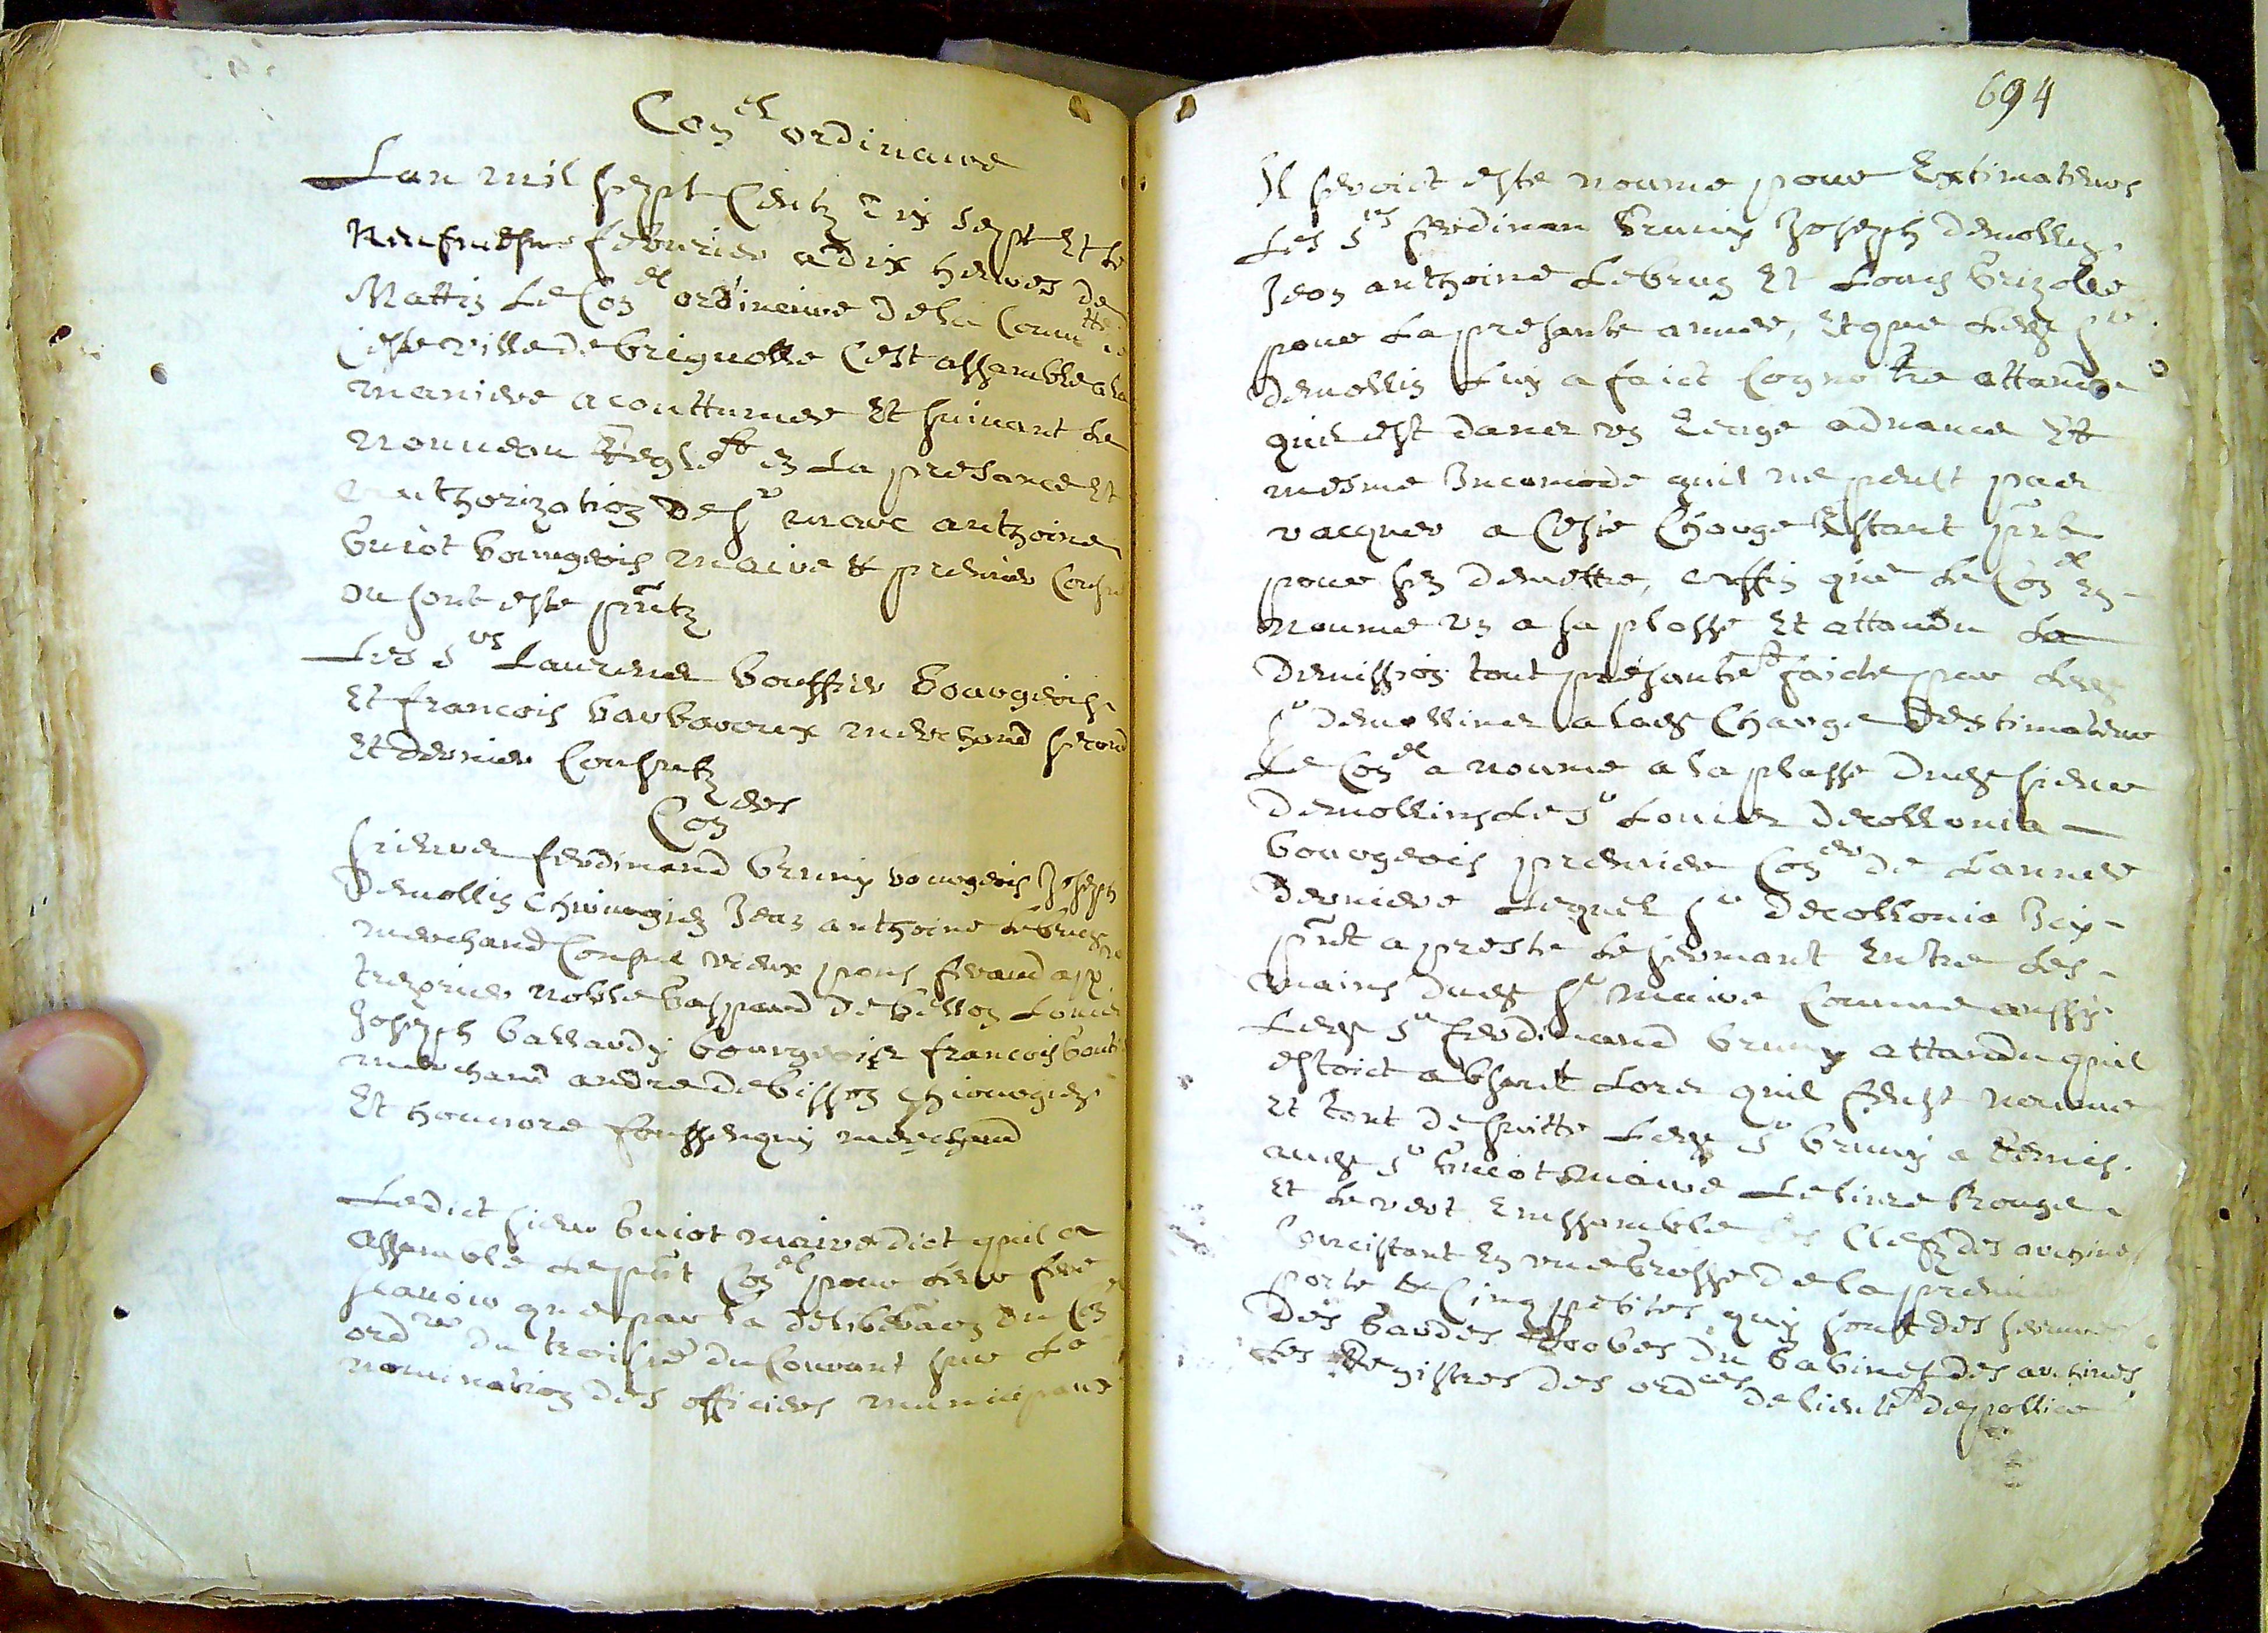 Con.el ordinaire
Lan mil sept Centz dix sept Et le
neufviesme febvrier a dix heures de
Mattin Le Con.el ordineire de la Commtté de
Ceste ville de brignolle Cest assamblé a la
maniere acouttumee Et suivant le
nouveau Regle.t en la presance Et
authorization de s.r marc anthoine
buiot bourgeois maire et premier Consul
ou sont este pntz
Les s.rs Laurens bouffier bourgeois
Et francois barbaroux merchand second
Et dernier Consulz
Con.ers
sieurs ferdinand bruny bourgeois Joseph
Demollin Chirurgien Jean anthoine Lebrun
merchand Consul vieux pons feraud app.re
noble gaspard de bellon Louis
Joseph ballardy bourgeois francois
merchand andre debisson Chirurgien
Et honnore fousenquy merchand
Ledict sieur buiot maire dict quil a
assamble le pnt Con.el pour leur fere
scavoir que par la deliberaon du Con.el
ord.re du troisie du Courant sur la
nomination des officiers municipaux
694
Il seroict este nomme pour Extimateurs
Les s.rs ferdinan bruny Joseph demollin
Jean anthoine Lebrun Et Louis brizolle
pour La presante annee, Et que led s.r
demollin Luy a faict Cognoitre attandu
quil est dans un Eaige advance Et
mesme Incomode quil ne peult pas
vacquer a Ceste Charge Estant pnt
pour sen demettre, affin que le Con.el En
nomme un a sa plasse Et attandu La
demission tout presante.t faicte par led
s.r demollin a lad Charge destimateur
Le Con.el a nomme a la plasse dud sieur
demollins Le s.r Louis decollonia
bourgeois premier Con.er de Lannee
derniere Lequel s.r decollonia Icy
pnt a preste le sermant Entre les
mains dud s.r maire Comme aussy
Led s.r ferdinand bruny attandu quil
estoict absant Lors quil feust nomme
Et tout de suitte Led s.r bruny a Remis
aud s.r buiot maire Le livre Rouge
Et le vert Enssamble les Clefz des archives
Concistant En une grosse de la premiere
porte Et Cinq petites, quy sont des
des gardes Robes du Cabinet des archives,
Les Registres des ord.ces de lieute.t de pollice